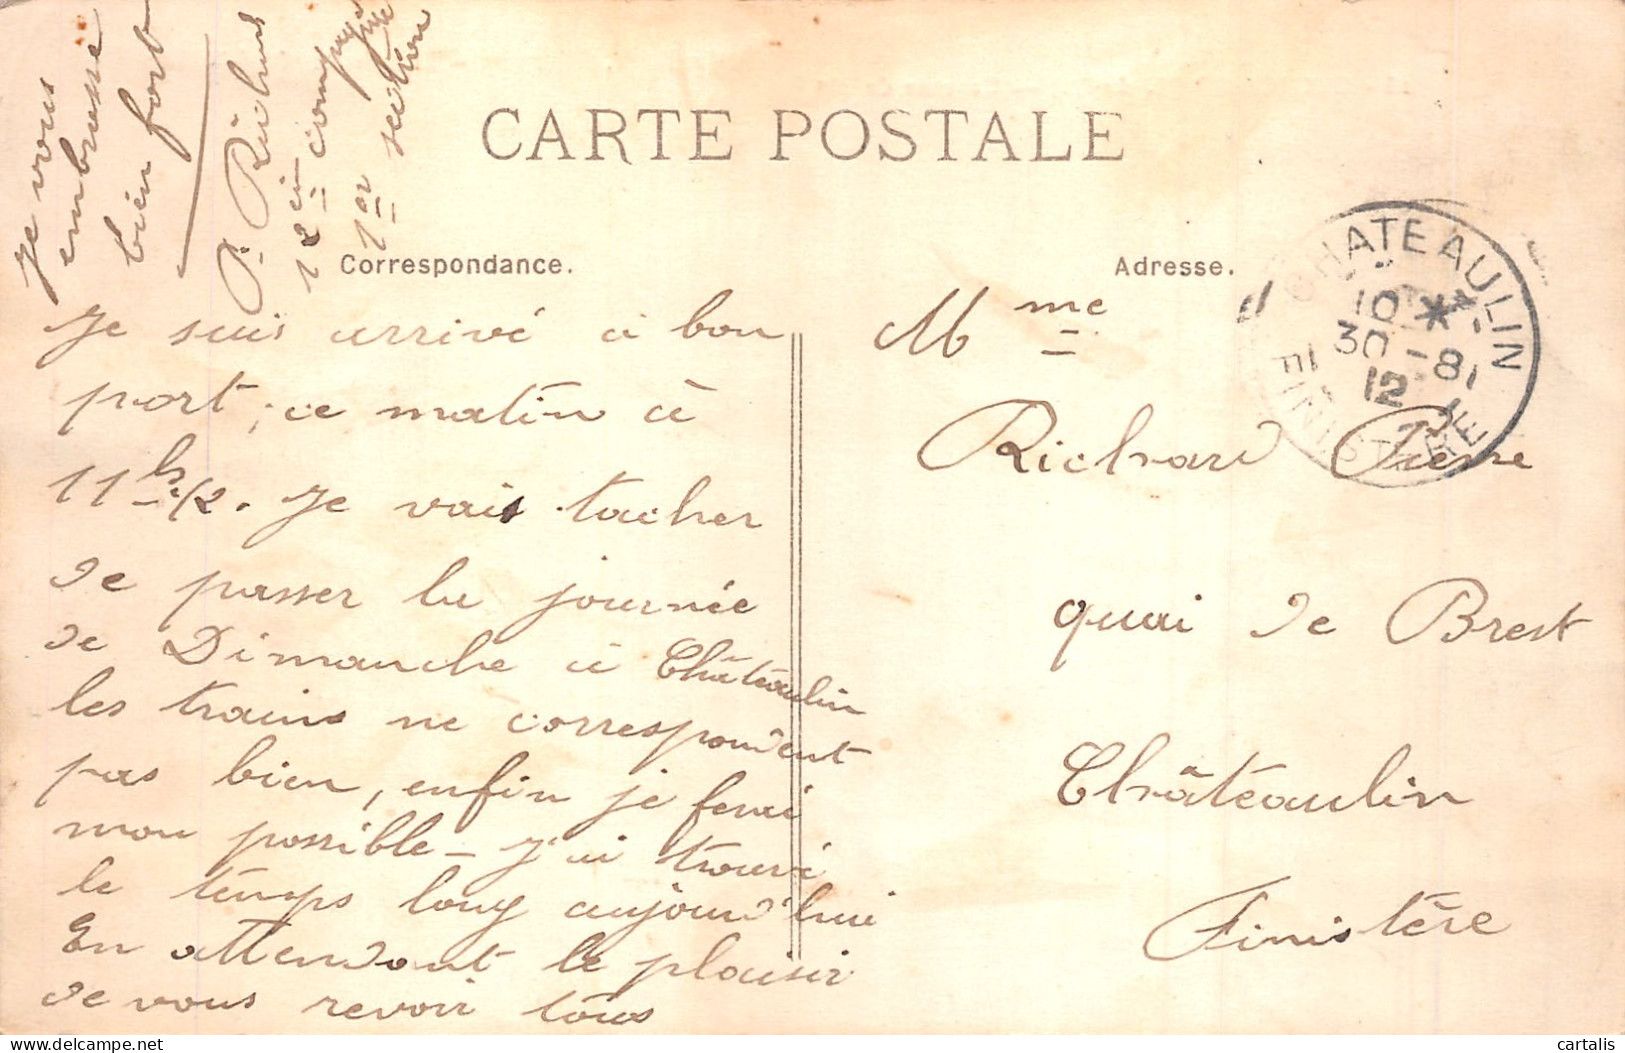 CARTE POSTALE
Correspondance.
Adresse.
Je suis arrivé à bon
port, ce matin à
11 h 1/2. Je vais tacher
de passer la journée
de Dimanche à Châteaulin
les trains ne correspondent
pas bien, enfin je ferai
mon possible - J'ai trouvé
le temps long aujourd'hui
En attendant le plaisir
de vous revoir tous
Je vous
embrasse
bien fort
P. Richard
12 em compagnie
1er section
Mme
Richard Pierre
quai de Brest
Châteaulin
Finistère
CHATEAULIN
10 *
30 - 8
12
FINISTERE
delcampe.net
cartalis